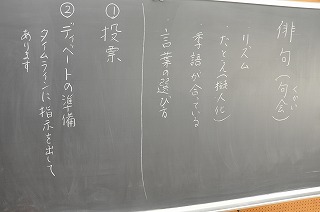 俳句(句会)
くかい
リズム
・たとえ(擬人化)
季語が合っている
言葉の選び方
① 投票
② ディベートの準備
タイムラインに指示を出して
あります